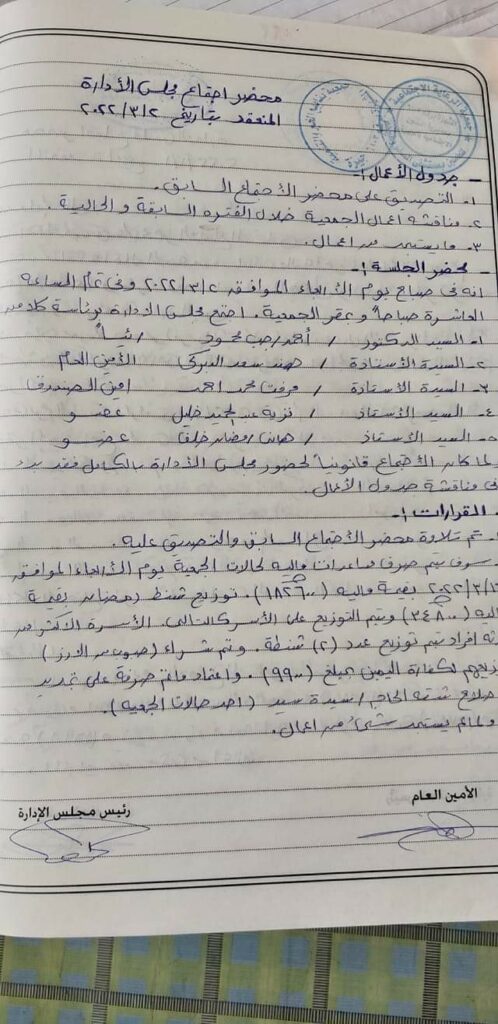 محضر اجتماع مجلس الأدارة
المنعقد بتاريخ ٢٠٢٢/٣/٢
- جدول الأعمال :-
١- التصديق على محضر الأجتماع السابق.
٢- مناقشة أعمال الجمعية خلال الفتره السابقة والحالية.
٣- ما يستجد من اعمال.
- محضر الجلسة :-
انه فى صباح يوم الأربعاء الموافق ٢٠٢٢/٣/٢ وفى تمام الساعه
العاشرة صباحاً وبمقر الجمعية. اجتمع مجلس الادارة برئاسة كلا من
١- السيد الدكتور / أحمد رجب محمود / رئيساً
٢- السيدة الأستاذة / هند سعد الأمين العام
٣- السيدة الأستاذة / مرفت محمد احمد أمين الصندوق
٤- السيد الأستاذ / نزيه عبد خليل عضو
٥- السيد الأستاذ / هانى رمضان خلف عضو
ولما كان الأجتماع قانونياً لحضور مجلس الأدارة بالكامل فقد بدء
فى مناقشة جدول الأعمال.
- القرارات :-
- تم تلاوة محضر الأجتماع السابق والتصديق عليه.
- سوف يتم صرف مساعدات ماليه لحالات الجمعية يوم الأربعاء الموافق
٢٠٢٢/٣/ بقيمة ماليه (١٨٢٦٠٠). توزيع شنط رمضان بقيمة
ماليه (٣٤٨٠٠) ويتم التوزيع على الأسر كالتالى. الأسرة الأكثر من
افراد يتم توزيع عدد (٢) شنطة. وتم شراء ( من الارز )
لكفارة اليمن بمبلغ (٩٩٠٠). واعتماد ما تم صرفة على تجديد
شقه الحاجه / سيدة سيد (احد حالات الجمعيه).
ولما لم يستجد شئ من اعمال.
الأمين العام
رئيس مجلس الإدارة